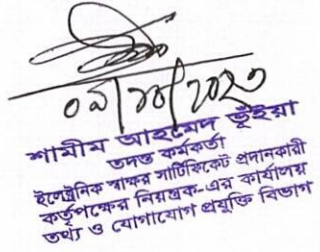 শামীম আহমেদ ভূঁইয়া
তদন্ত কর্মকর্তা
ইলেট্রনিক স্বাক্ষর সার্টিফিকেট প্রদানকারী
কর্তৃপক্ষের নিয়ন্ত্রক-এর কার্যালয়
তথ্য ও যোগাযোগ প্রযুক্তি বিভাগ